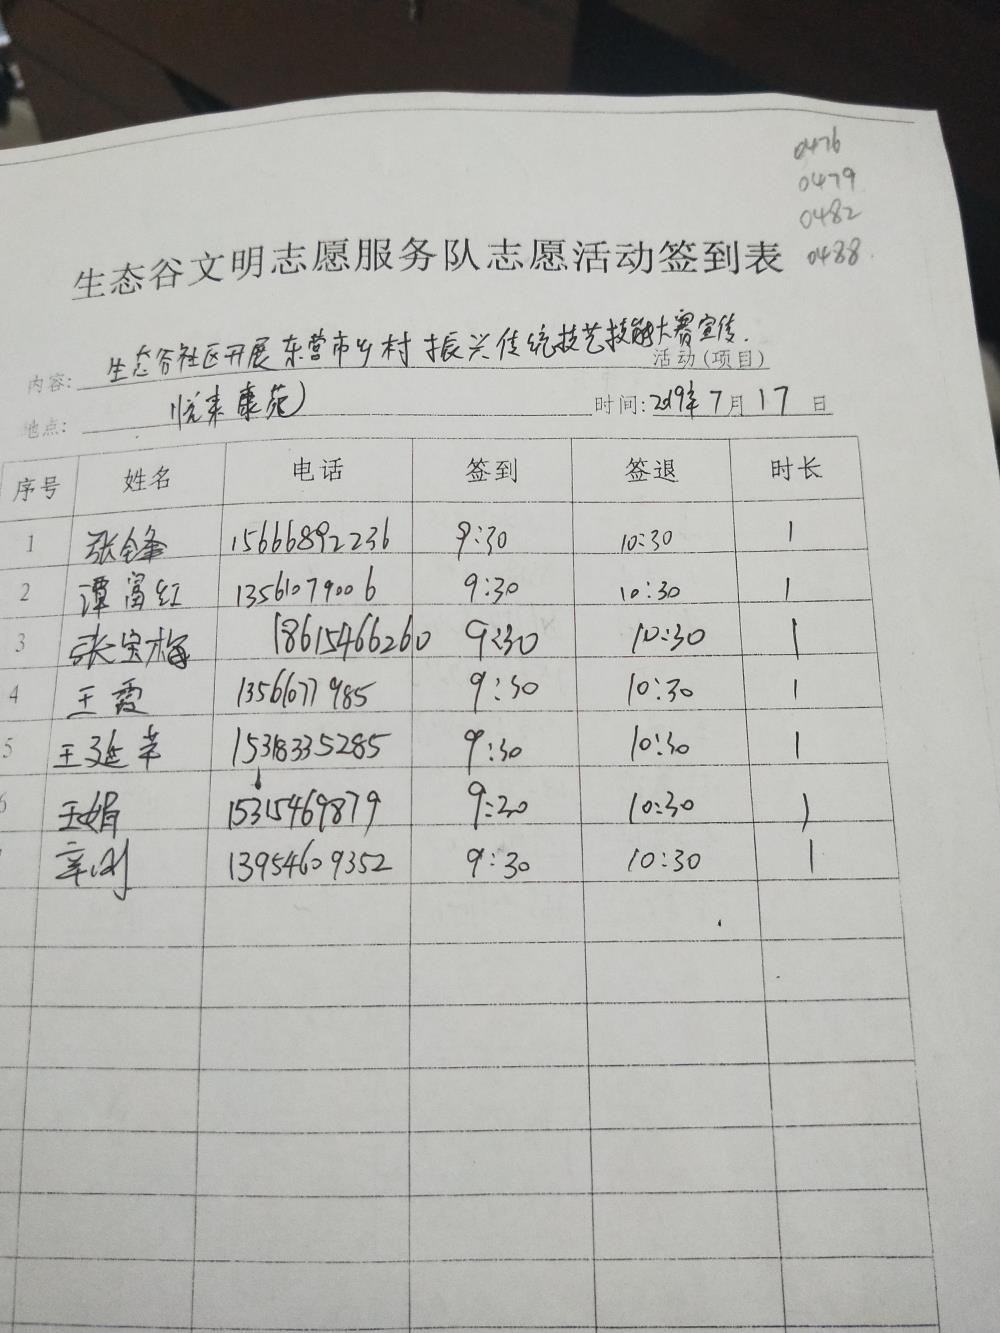 0476
0479
0482
0488
生态谷文明志愿服务队志愿活动签到表
内容: 生态谷社区开展东营市乡村振兴传统技艺技能大赛宣传. 活动(项目)
地点: 悦来康苑) 时间: 2019年7月17日
序号 姓名 电话 签到 签退 时长
1 张全锋 15666892236 9:30 10:30 1
2 谭富红 13561079006 9:30 10:30 1
3 张宝梅 18615466260 9:30 10:30 1
4 王霞 13561077985 9:30 10:30 1
5 王延苹 15318335285 9:30 10:30 1
6 王娟 15315469879 9:30 10:30 1
辛刚 13954609352 9:30 10:30 1